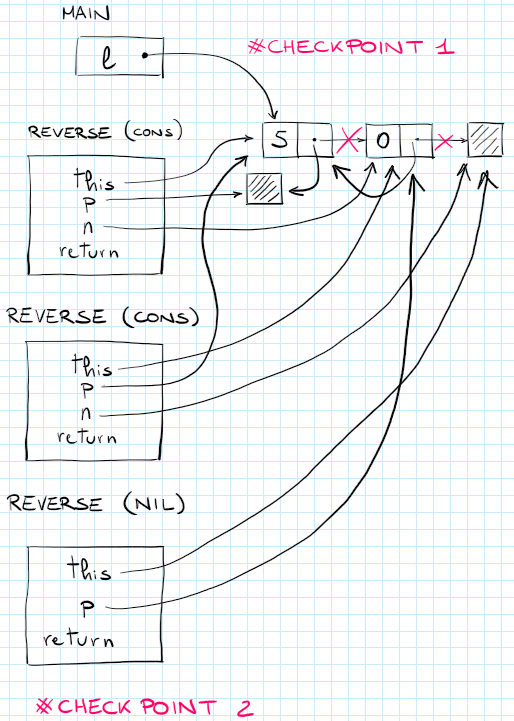 MAIN
l
#CHECKPOINT 1
5 0
REVERSE (CONS)
this
p
n
return
REVERSE (CONS)
this
p
n
return
REVERSE (NIL)
this
p
return
#CHECKPOINT 2